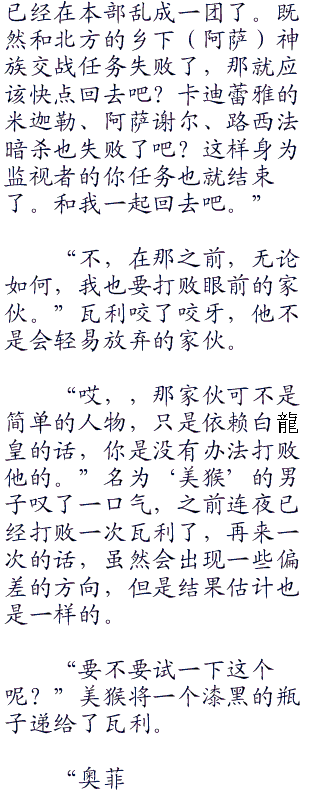 已经在本部乱成一团了。既
然和北方的乡下（阿萨）神
族交战任务失败了，那就应
该快点回去吧？卡迪蕾雅的
米迦勒、阿萨谢尔、路西法
暗杀也失败了吧？这样身为
监视者的你任务也就结束
了。和我一起回去吧。”
“不，在那之前，无论
如何，我也要打败眼前的家
伙。”瓦利咬了咬牙，他不
是会轻易放弃的家伙。
“哎，，那家伙可不是
简单的人物，只是依赖白龍
皇的话，你是没有办法打败
他的。”名为‘美猴’的男
子叹了一口气，之前连夜已
经打败一次瓦利了，再来一
次的话，虽然会出现一些偏
差的方向，但是结果估计也
是一样的。
“要不要试一下这个
呢？”美猴将一个漆黑的瓶
子递给了瓦利。
“奥菲